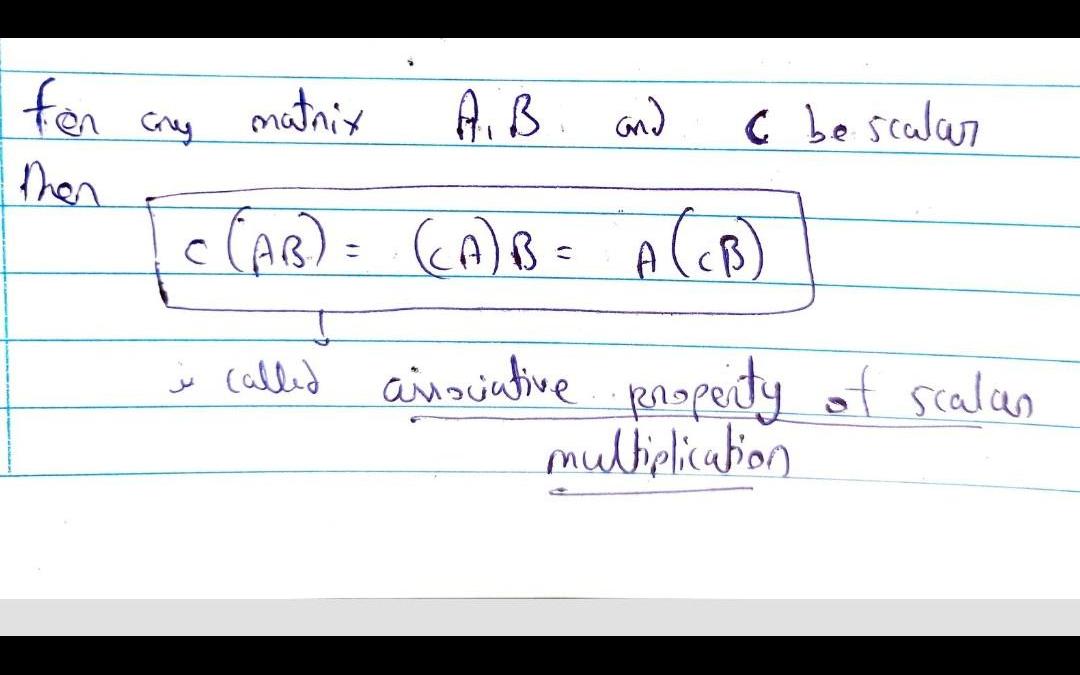 for any matrix A, B and c be scalar
Then
c(AB) = (cA)B = A(cB)
is called associative property of scalar
multiplication